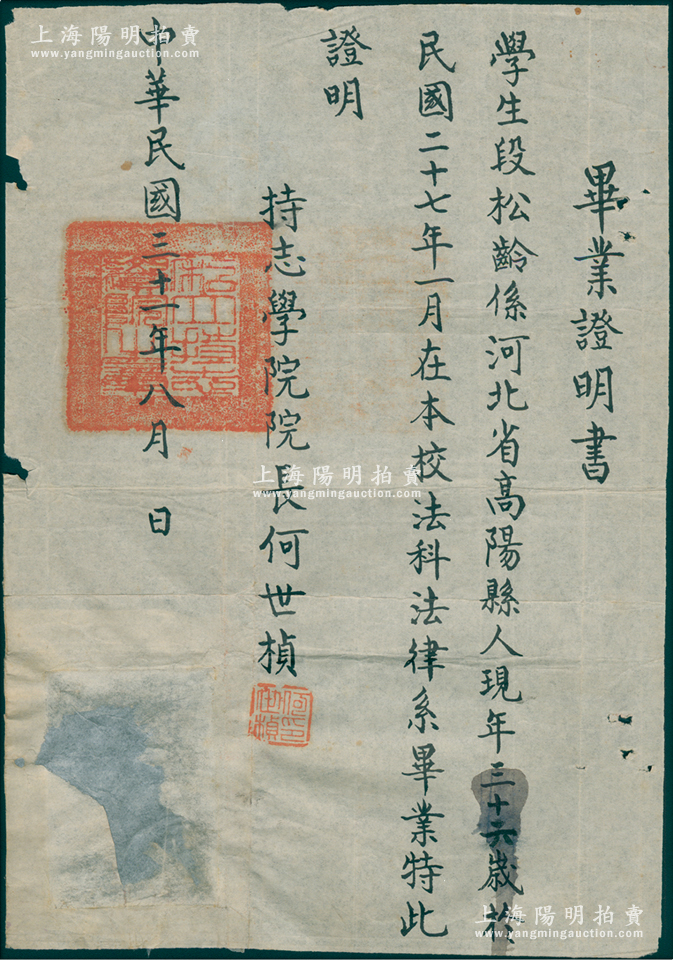 畢業證明書
學生段松齡係河北省高陽縣人現年三十六歲於
民國二十七年一月在本校法科法律系畢業特此
證明
持志學院院長何世楨
何世楨印
中華民國三十一年八月 日
上海陽明拍賣
www.yangmingauction.com
上海陽明拍賣
www.yangmingauction.com
上海陽明拍賣
www.yangmingauction.com
上海陽明拍賣
www.yangmingauction.com